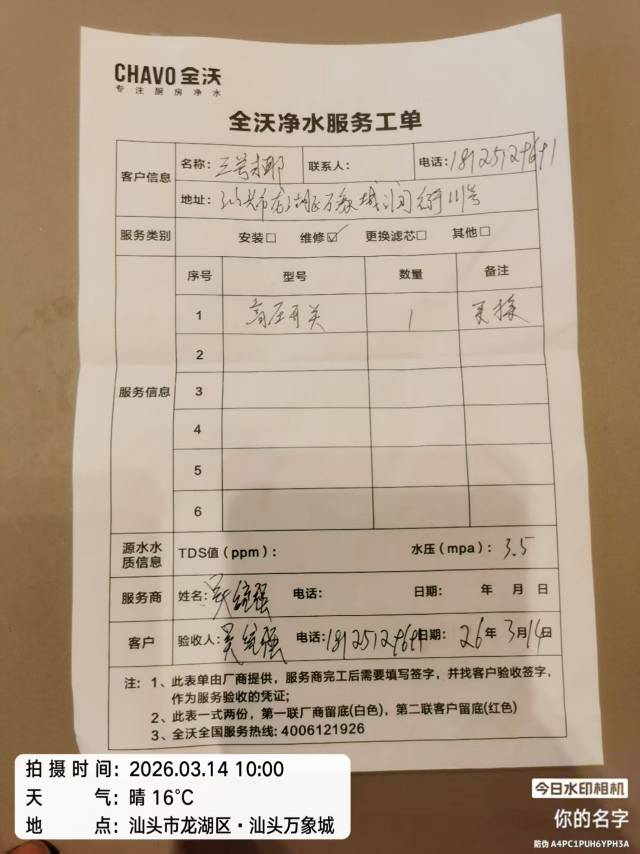 CHAVO 全沃
专注厨房净水
全沃净水服务工单
客户信息 名称: 联系人: 电话:18125129691
地址: 汕头市龙湖区万象城 111号
服务类别 安装□ 维修☑ 更换滤芯□ 其他□
服务信息 序号 型号 数量 备注
1 高压开关 1 更换
2
3
4
5
6
源水水质信息 TDS值(ppm): 水压(mpa): 3.5
服务商 姓名: 电话: 日期: 年 月 日
客户 验收人: 电话:18125129691 日期: 26年 3月14日
注: 1、此表单由厂商提供，服务商完工后需要填写签字，并找客户验收签字，
作为服务验收的凭证;
2、此表一式两份，第一联厂商留底(白色)，第二联客户留底(红色)
3、全沃全国服务热线: 4006121926
拍摄时间: 2026.03.14 10:00
天 气: 晴 16°C
地 点: 汕头市龙湖区·汕头万象城
今日水印相机
你的名字
防伪 A4PC1PUH6YPH3A